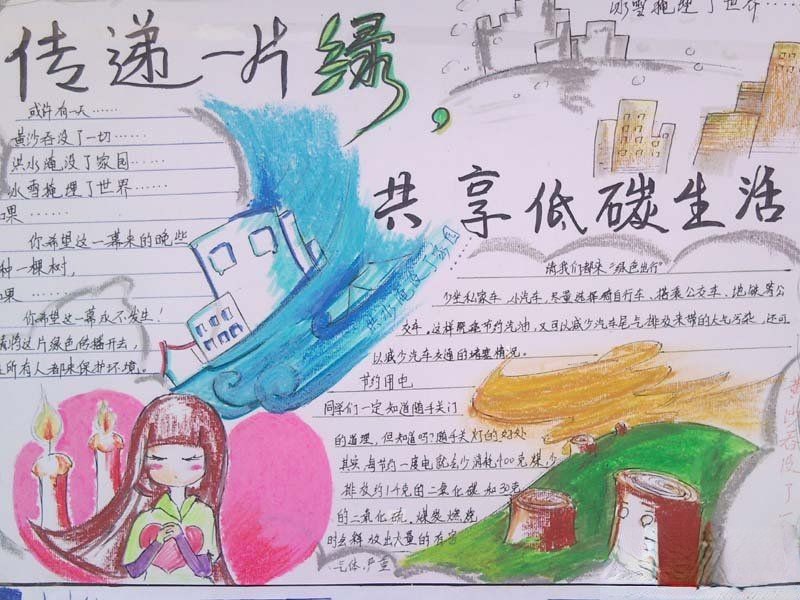 传递一片绿，
共享低碳生活
冰雪掩埋了世界……
或许有一天……
黄沙吞没了一切……
洪水淹没了家园……
冰雪掩埋了世界……
果……
你希望这一幕来的晚些
种一棵树，
果……
你希望这一幕永不发生！
将这片绿色传播开去，
所有人都来保护环境。
洪水淹没了家园……
请我们都来“绿色出行”
少坐私家车、小汽车，尽量选择骑自行车、搭乘公交车、地铁等公
交车。这样既能节约汽油，又可以减少汽车尾气排放来带的大气污染，还可
以减少汽车交通的堵塞情况。
节约用电
同学们一定知道随手关门
的道理，但知道吗？随手关灯的好处
其实，每节约一度电就会少消耗400克煤，少
排放约1千克的二氧化碳和30克
的二氧化硫。煤炭燃烧
时会释放出大量的有害
气体，严重
黄沙吞没了一